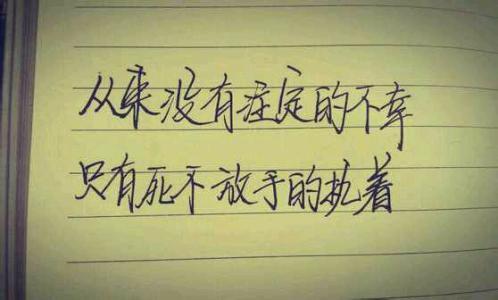 从来没有注定的不幸
只有死不放手的执着